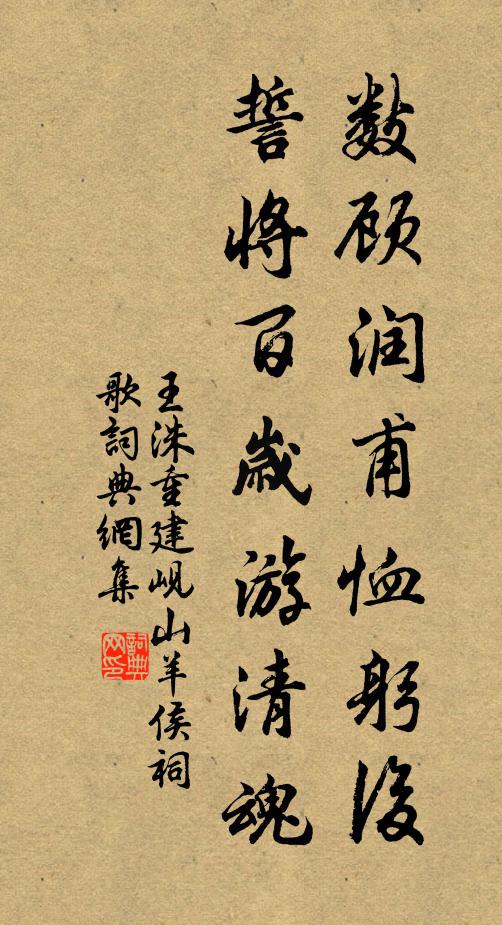 数顾润甫恤躬後
誓将百歲游清魂
王洙重建岘山羊侯祠
歌詞典網集
詞典網印